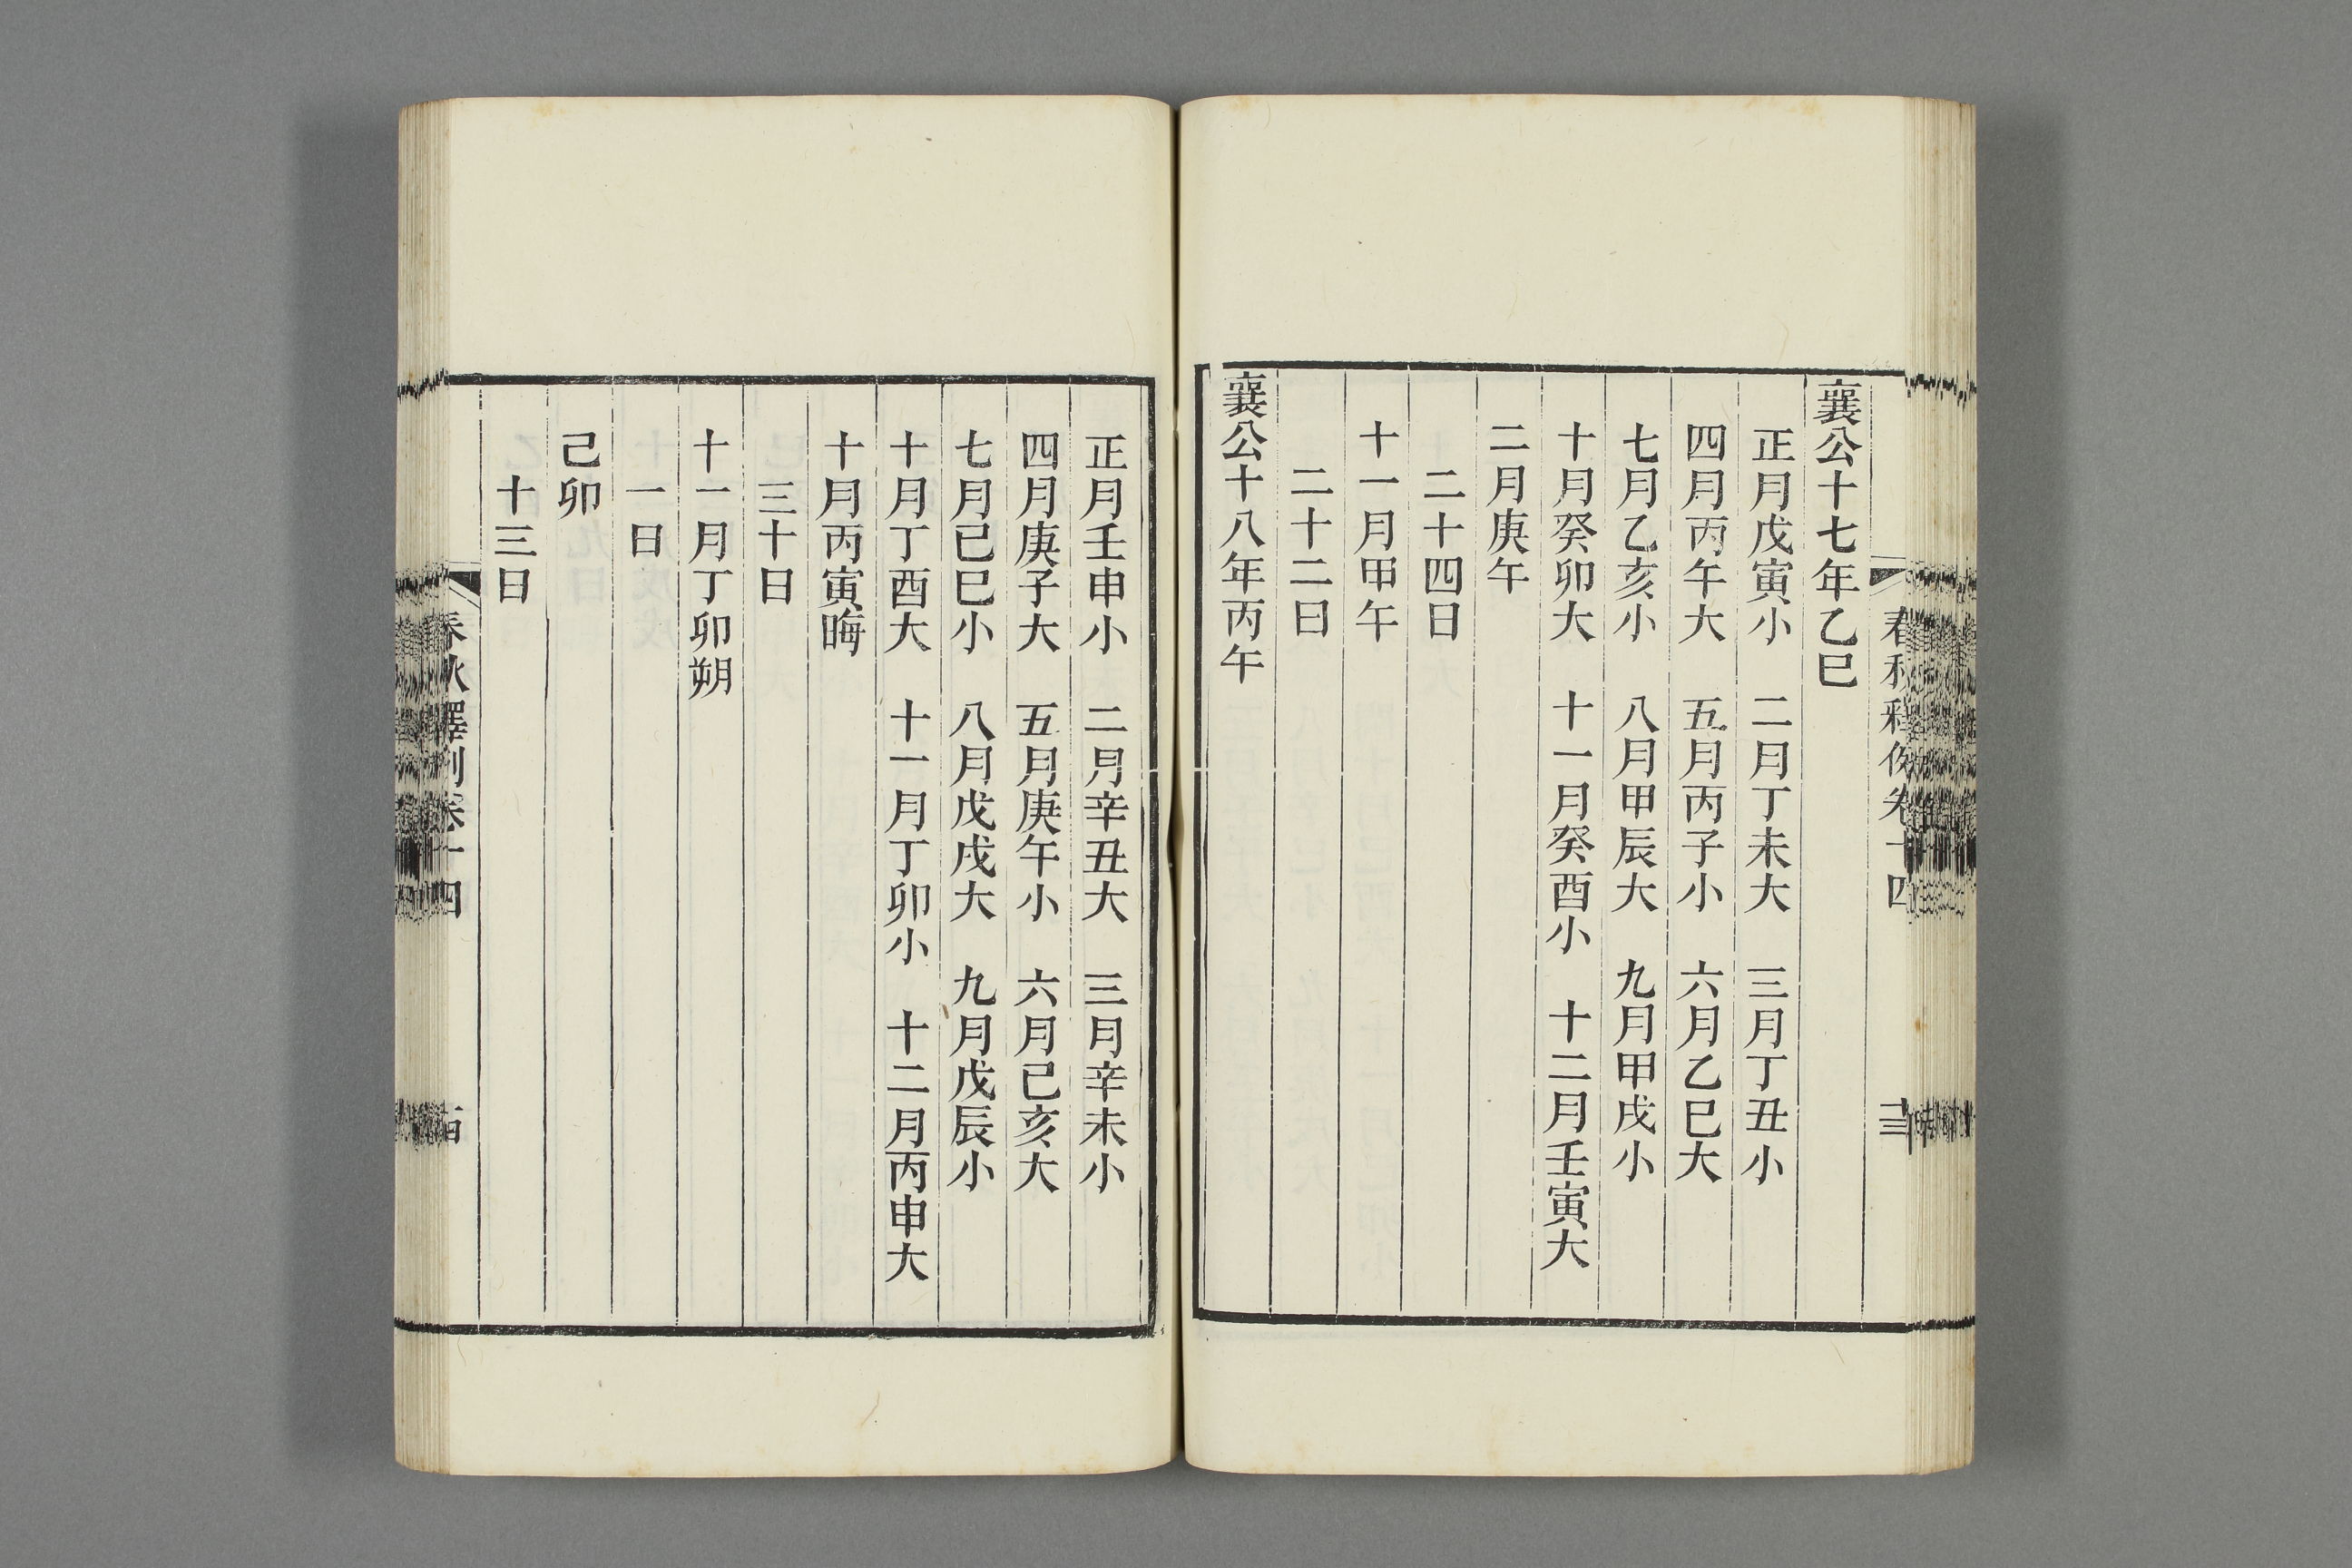 春秋釋例卷十四
襄公十七年乙巳
正月戊寅小　二月丁未大　三月丁丑小
四月丙午大　五月丙子小　六月乙巳大
七月乙亥小　八月甲辰大　九月甲戌小
十月癸卯大　十一月癸酉小　十二月壬寅大
二月庚午
二十四日
十一月甲午
二十二日
襄公十八年丙午
正月壬申小　二月辛丑大　三月辛未小
四月庚子大　五月庚午小　六月己亥大
七月己巳小　八月戊戌大　九月戊辰小
十月丁酉大　十一月丁卯小　十二月丙申大
十月丙寅晦
三十日
十一月丁卯朔
一日
己卯
十三日
春秋釋例卷十四